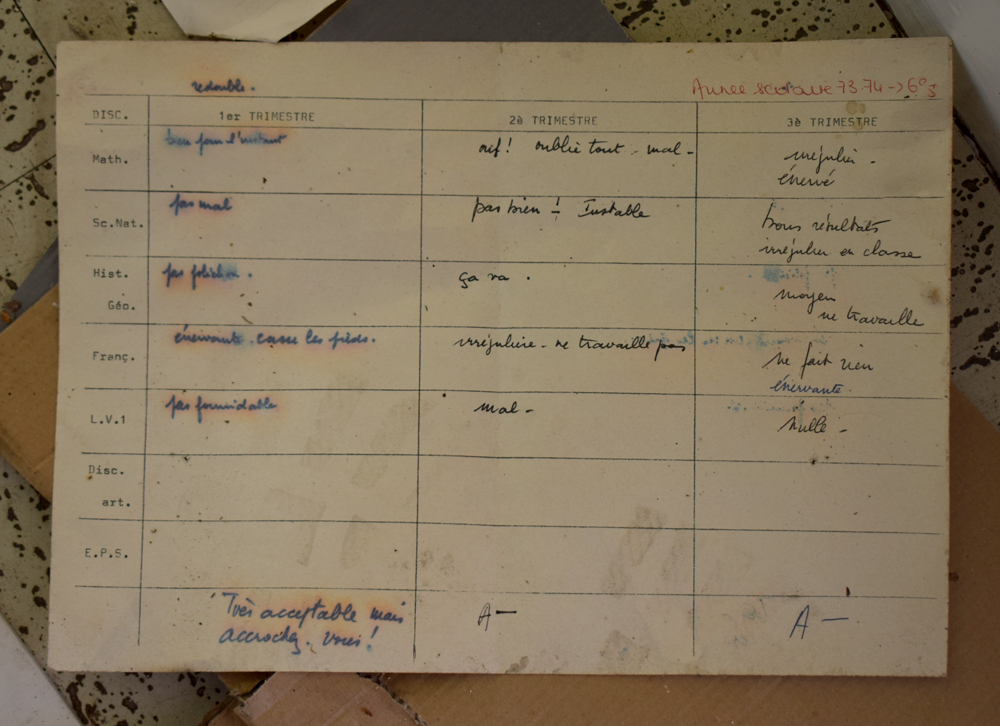 redouble.
Année scolaire 73.74 -> 6e3
DISC. 1er TRIMESTRE 2è TRIMESTRE 3è TRIMESTRE
Math. bien pour l'instant ouf! oublie tout - mal - irrégulier -
énervé
Sc.Nat. pas mal pas bien ! Instable bons résultats
irrégulier en classe
Hist. pas folichon. ça va. moyen
Géo. ne travaille
Franç. énervante. casse les pieds. irrégulière - ne travaille pas ne fait rien
énervante.
L.V.1 pas formidable mal - nulle -
Disc.
art.
E.P.S.
Très acceptable mais A- A-
accrochez-vous!